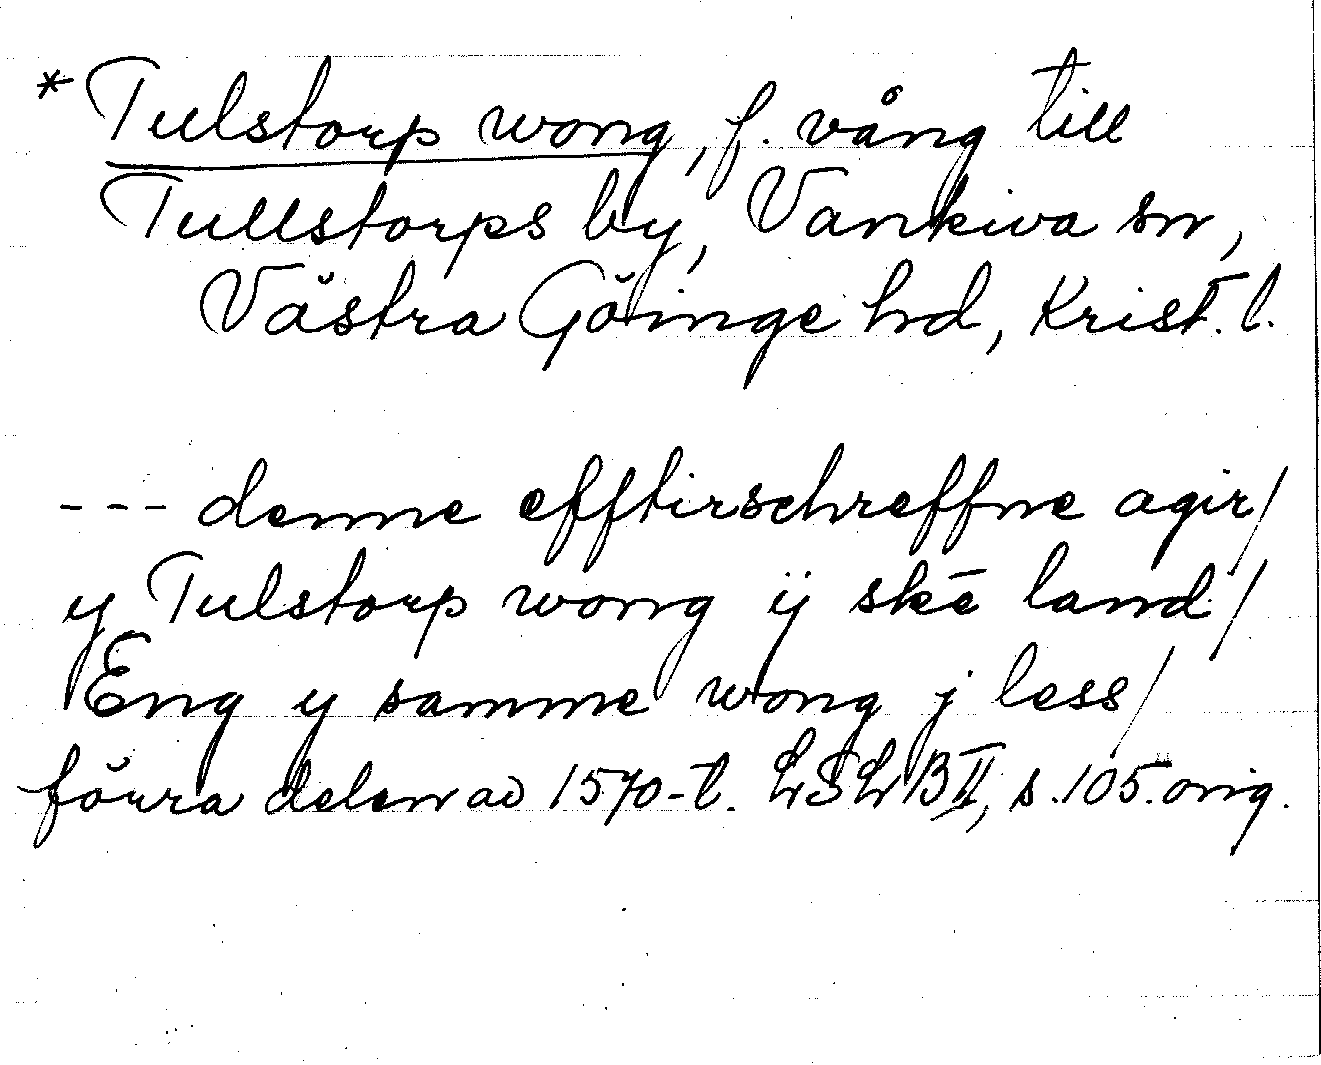 * Tulstorp wong, f. vång till
Tullstorps by, Vankiva sn,
Västra Göinge hd, Krist. l.
--- denne efftirschreffne agir/
y Tulstorp wong ij skē land/
Eng y samme wong j less/
förra delen av 1570-t. LSLB II, s. 105. orig.